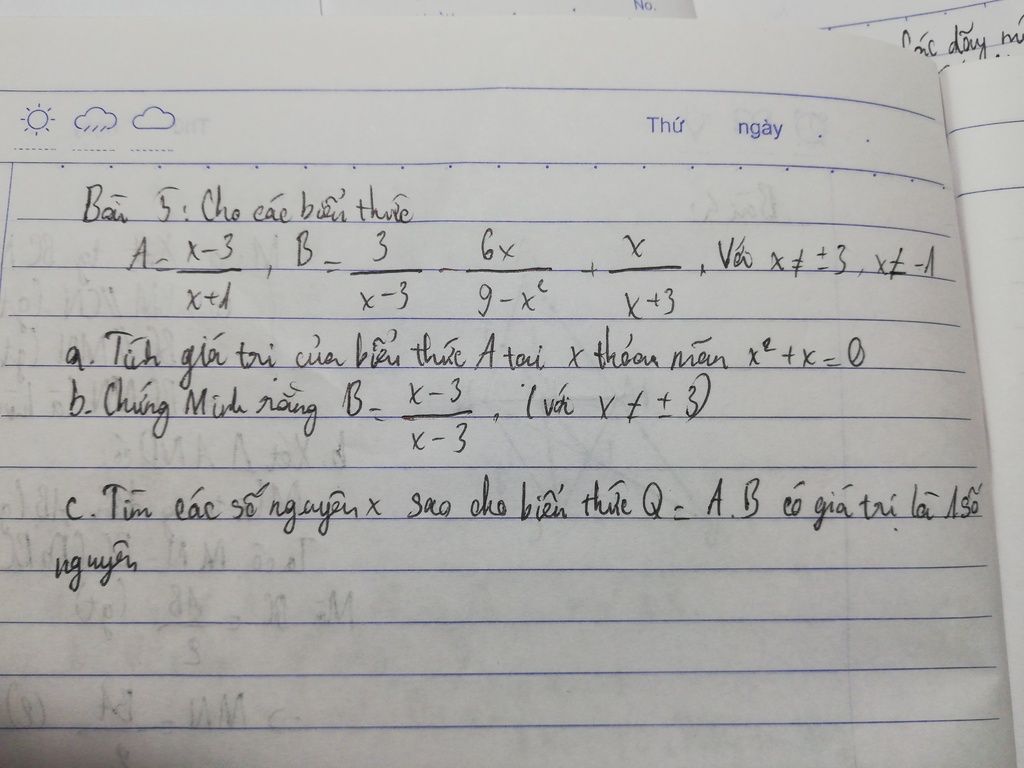 No.
Các dãy
Thứ ngày . .
Bài 5: Cho các biểu thức
A = x-3/x+1, B = 3/x-3 - 6x/9-x² + x/x+3, Với x ≠ ±3, x ≠ -1
a. Tính giá trị của biểu thức A tại x thỏa mãn x² + x = 0
b. Chứng Minh rằng B = x-3/x-3, (với x ≠ ±3)
c. Tìm các số nguyên x sao cho biểu thức Q = A.B có giá trị là 1 số
nguyên